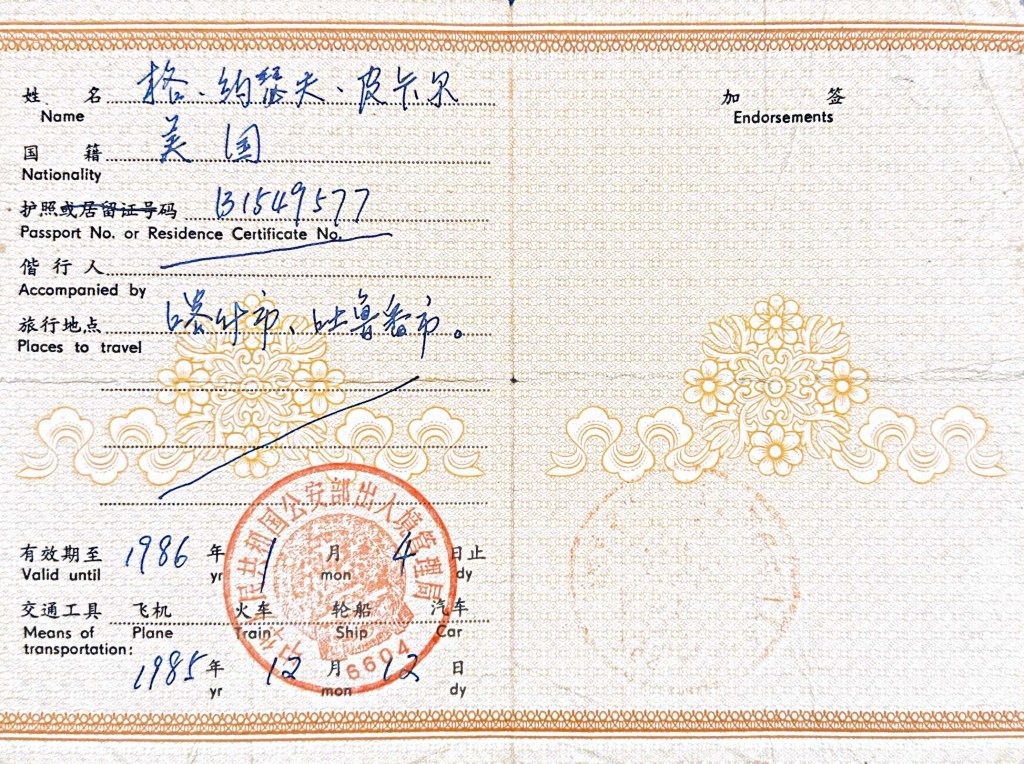 姓 名 格、约瑟夫、皮卡尔
Name
国 籍 美国
Nationality
护照或居留证号码 131549577
Passport No. or Residence Certificate No.
偕行人
Accompanied by
旅行地点 喀什市、吐鲁番市。
Places to travel
有效期至 1986 年 1 月 4 日止
Valid until yr mon dy
交通工具 飞机 火车 轮船 汽车
Means of Plane Train Ship Car
transportation:
1985 年 12 月 12 日
yr mon dy
中华人民共和国公安部出入境管理局
6604
加 签
Endorsements